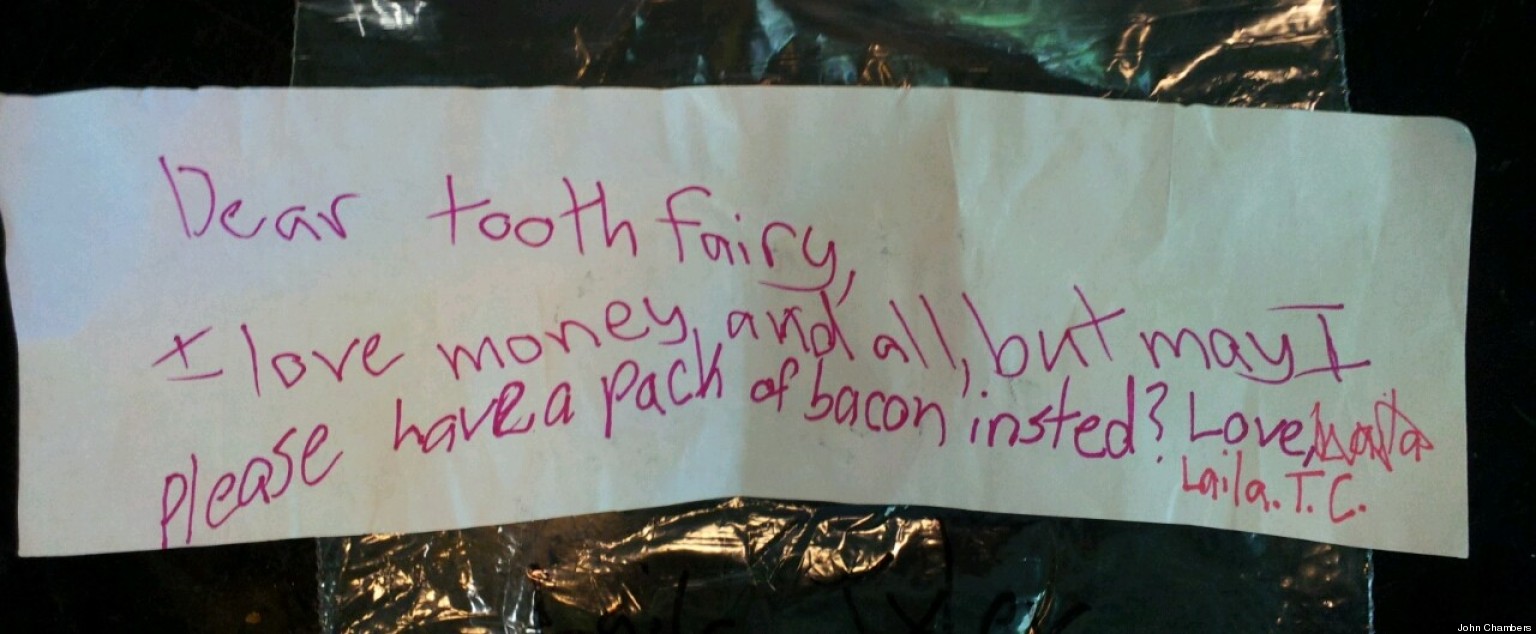 Dear tooth fairy,
I love money, and all, but may I
please have a pack of bacon insted? Love,
Laila. T. C.
John Chambers